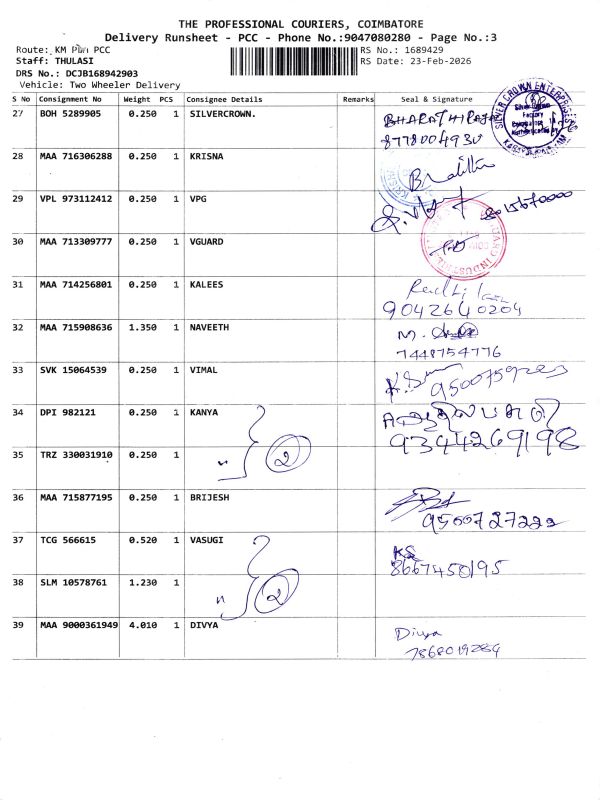 THE PROFESSIONAL COURIERS, COIMBATORE
Delivery Runsheet - PCC - Phone No.:9047080280 - Page No.:3
Route: KM PCC
RS No.: 1689429
Staff: THULASI
RS Date: 23-Feb-2026
DRS No.: DCJB168942903
Vehicle: Two Wheeler Delivery
S No Consignment No Weight PCS Consignee Details Remarks Seal & Signature
27 BOH 5289905 0.250 1 SILVERCROWN. BHARATHIRAJA
8778004930
SILVER CROWN ENTERPRISES
28 MAA 716306288 0.250 1 KRISNA
29 VPL 973112412 0.250 1 VPG
8015670000
30 MAA 713309777 0.250 1 VGUARD
31 MAA 714256801 0.250 1 KALEES
9042640204
32 MAA 715908636 1.350 1 NAVEETH M.
7448754776
33 SVK 15064539 0.250 1 VIMAL
34 DPI 982121 0.250 1 KANYA
9344269198
35 TRZ 330031910 0.250 1 " 2
36 MAA 715877195 0.250 1 BRIJESH
9500727222
37 TCG 566615 0.520 1 VASUGI KS
8667450195
38 SLM 10578761 1.230 1 " 2
39 MAA 9000361949 4.010 1 DIVYA Divya
7868019284